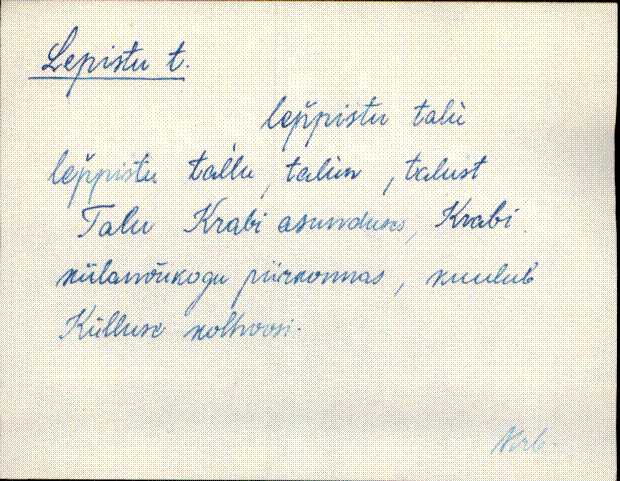 Lepistu t.
lep̆pistu talù
lep̆pistu tàl̀lu, talùn, talust
Talu Krabi asunduses, Krabi
külanõukogu piirkonnas, kuulub
Külluse kolhoosi.